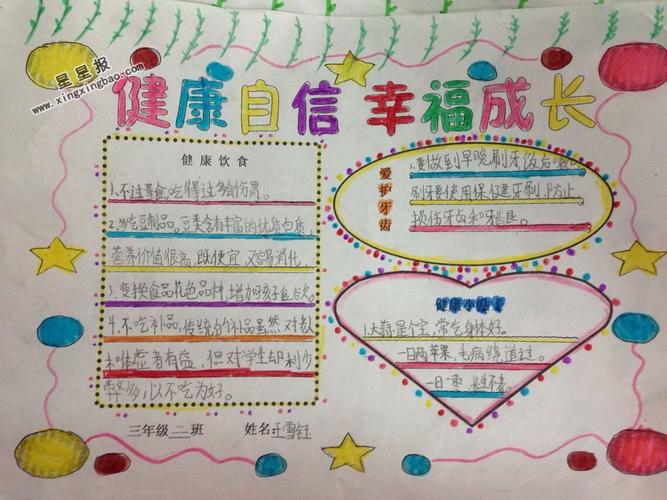 星星报
www.xingxingbao.com
健康自信 幸福成长
健康饮食
1.不过量食,吃得过多给伤胃。
2.多吃豆制品。豆类含有丰富的优质白质,
营养价值很高,既便宜,又容易消化,
3.变换食品花色品料,增加孩子食欲。
4.不吃补品,传统的补品虽然对老
唯虚者有益,但对学生却利少
弊多,以不吃为好。
三年级二班 姓名:王雪钰
爱护牙齿
1.要做到早晚刷牙饭后
刷牙要使用保健牙刷,防止
损伤牙白和牙龈。
健康小
1.大蒜是个宝,常吃身体好。
一日两苹果,毛病绕道过。
一日一枣 长生不老。